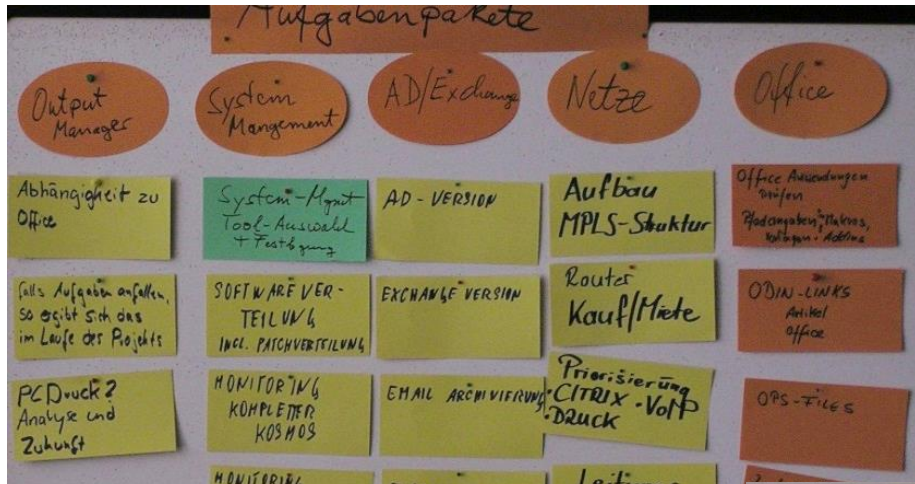 Aufgabenpakete
Output
Manager
System
Mangement
AD/Exchange
Netze
Office
Abhängigkeit zu
Office
falls Aufgaben anfallen,
so ergibt sich das
im Laufe des Projekts
PC Druck?
Analyse und
Zukunft
System-Mgmt
Tool-Auswahl
+ Festlegung
SOFTWAREVER-
TEILUNG
INCL. PATCHVERTEILUNG
MONITORING
KOMPLETTER
KOSMOS
MONITORING
AD - VERSION
EXCHANGE VERSION
EMAIL ARCHIVIERUNG
Aufbau
MPLS-Struktur
Router
Kauf/Miete
Priorisierung
·CITRIX ·VoIP
·DRUCK
Leitung
Office Anwendungen
prüfen
Pfadangaben, Makros,
Vorlagen - Addins
ODIN-LINKS
Artikel
Office
OPS-FILES